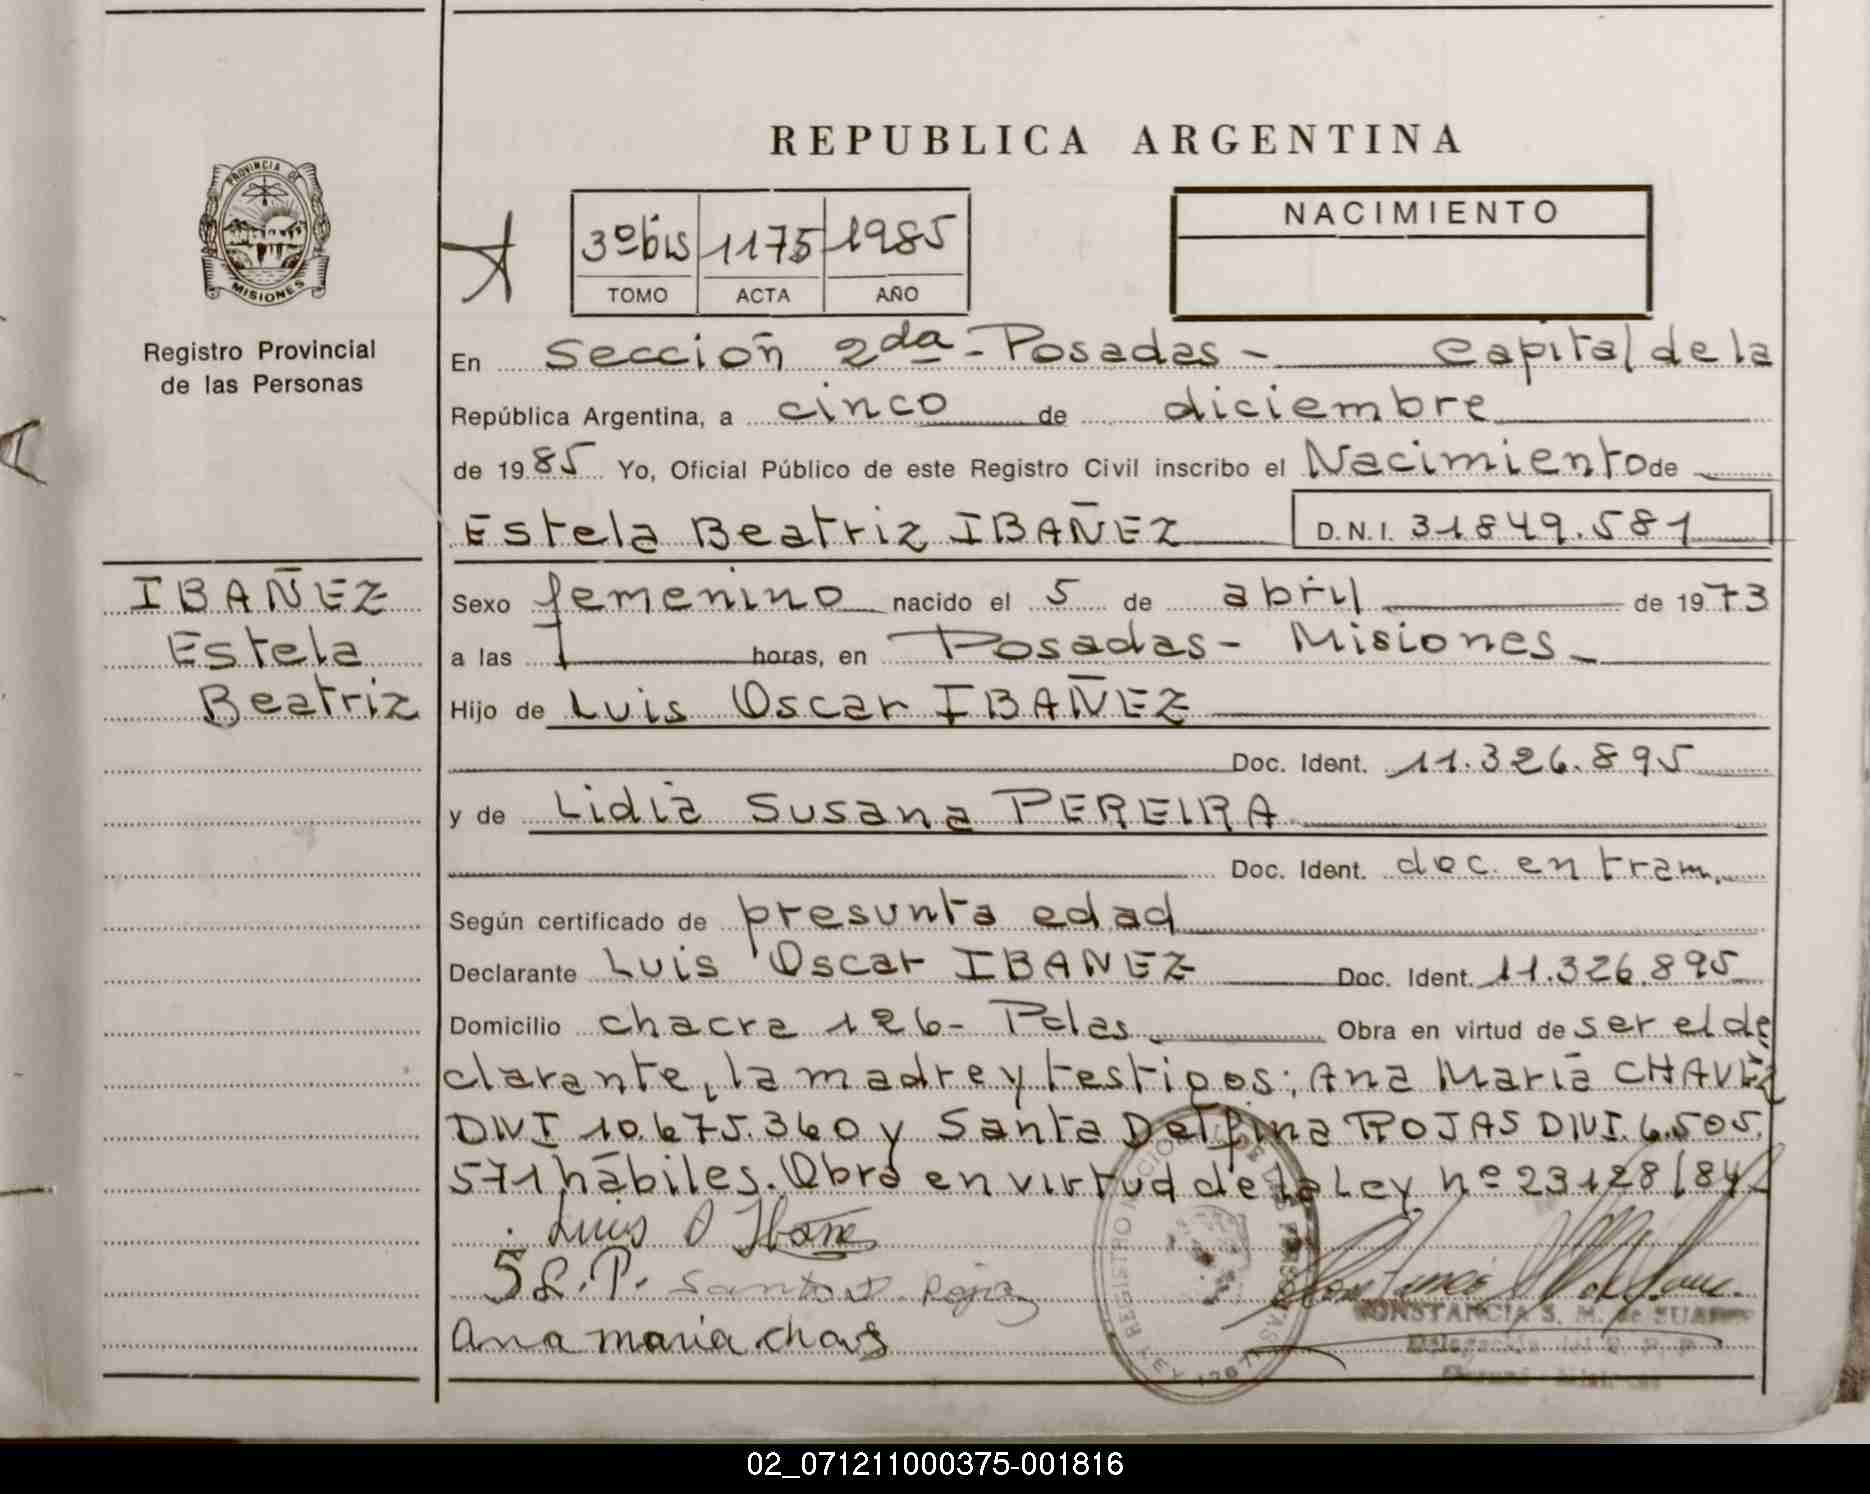 REPUBLICA ARGENTINA
PROVINCIA DE
MISIONES
Registro Provincial
de las Personas
3º bis 1175 1985
TOMO ACTA AÑO
NACIMIENTO
En Sección 2da - Posadas - Capital de la
República Argentina, a cinco de diciembre
de 1985 Yo, Oficial Público de este Registro Civil inscribo el Nacimiento de
Estela Beatriz IBAÑEZ D.N.I. 31849.581
IBAÑEZ
Estela
Beatriz
Sexo femenino nacido el 5 de abril de 1973
a las horas, en Posadas - Misiones
Hijo de Luis Oscar IBAÑEZ
Doc. Ident. 11.326.895
y de Lidia Susana PEREIRA
Doc. Ident. doc. en tram.
Según certificado de presunta edad
Declarante Luis Oscar IBANEZ Doc. Ident. 11.326.895
Domicilio chacra 126 - Pdas. Obra en virtud de ser el de
clarante, la madre y testigos: Ana María CHAVEZ
DNI 10.675.360 y Santa Delfina ROJAS DNI. 6.505.
571 hábiles. Obra en virtud de la Ley nº 23128/84
Luis O Ibañe
S L. P. Santa D. Rojas
Ana maria chavs
CONSTANCIA S. M. de
02_071211000375-001816